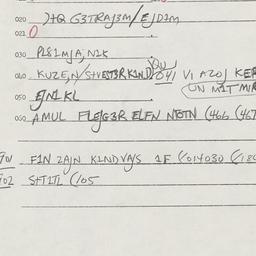 020 )+Q G3TRAJ3M/EJD1M
021 0
030 PL81MJA,N1K
040 KUZE,N/S+VE5T3RK1ND) QU 041 V1 AZOJ KER
UN MIT MIR
050 EJN1 KL
060 AMUL FLEJG3R ELFN NOTN (466 (467
901 F1N ZAJN K1NDVAJS 1F (/014030 (/180
902 S+T1TL (/105